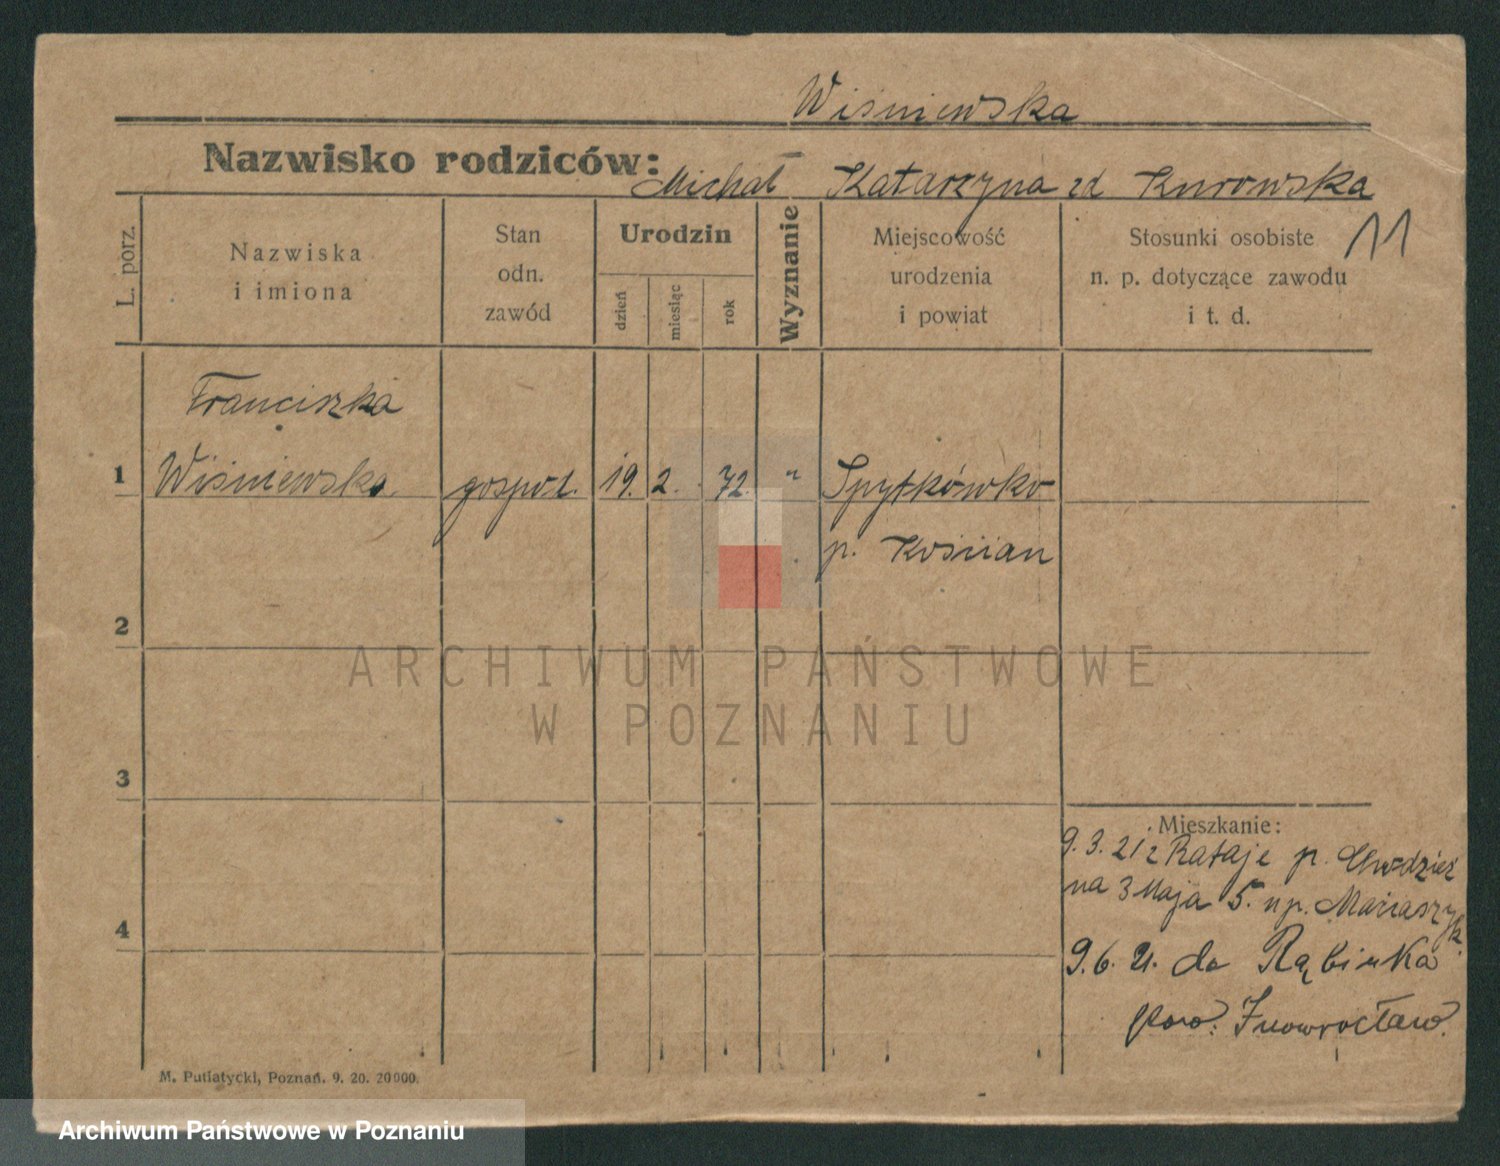 Wiśniewska
Nazwisko rodziców: Michał Katarzyna zd Kurowska
11
L. porz.
Nazwiska
i imiona
Stan
odn.
zawód
Urodzin
dzień
miesiąc
rok
Wyznanie
Miejscowość
urodzenia
i powiat
Stosunki osobiste
n. p. dotyczące zawodu
i t. d.
Franciszka
1 Wiśniewska gospod. 19. 2. 72. " Spytkówko
p. Kościan
2
3
4
Mieszkanie:
9.3.21 z Rataje p. Chodzież
na 3 Maja 5. u p. Mariaszyk.
9.6.21. do Rąbinka
pow. Inowrocław.
M. Putiatycki, Poznań. 9. 20. 20000.
ARCHIWUM PAŃSTWOWE
W POZNANIU
Archiwum Państwowe w Poznaniu